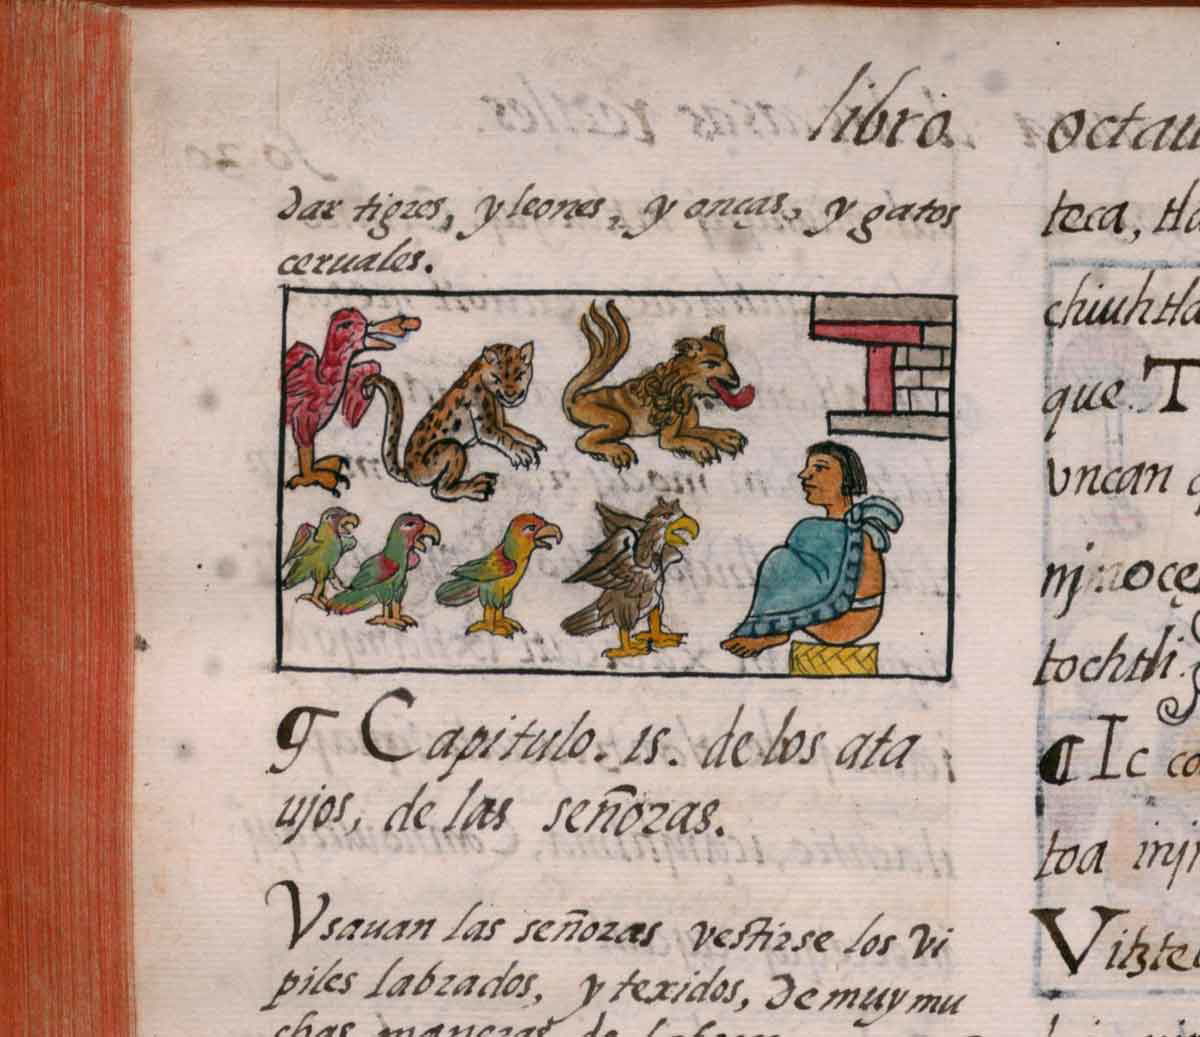 libro octau
dar tigres, y leones, y onças, y gatos
ceruales.
¶ Capitulo. 15. de los ata
ujos, de las señoras.
Vsauan las señoras vestirse los vi
piles labrados, y texidos, de muy mu
chas maneras de
teca,
chiuhtla
que
vncan
tochtli
¶ Ic
toa